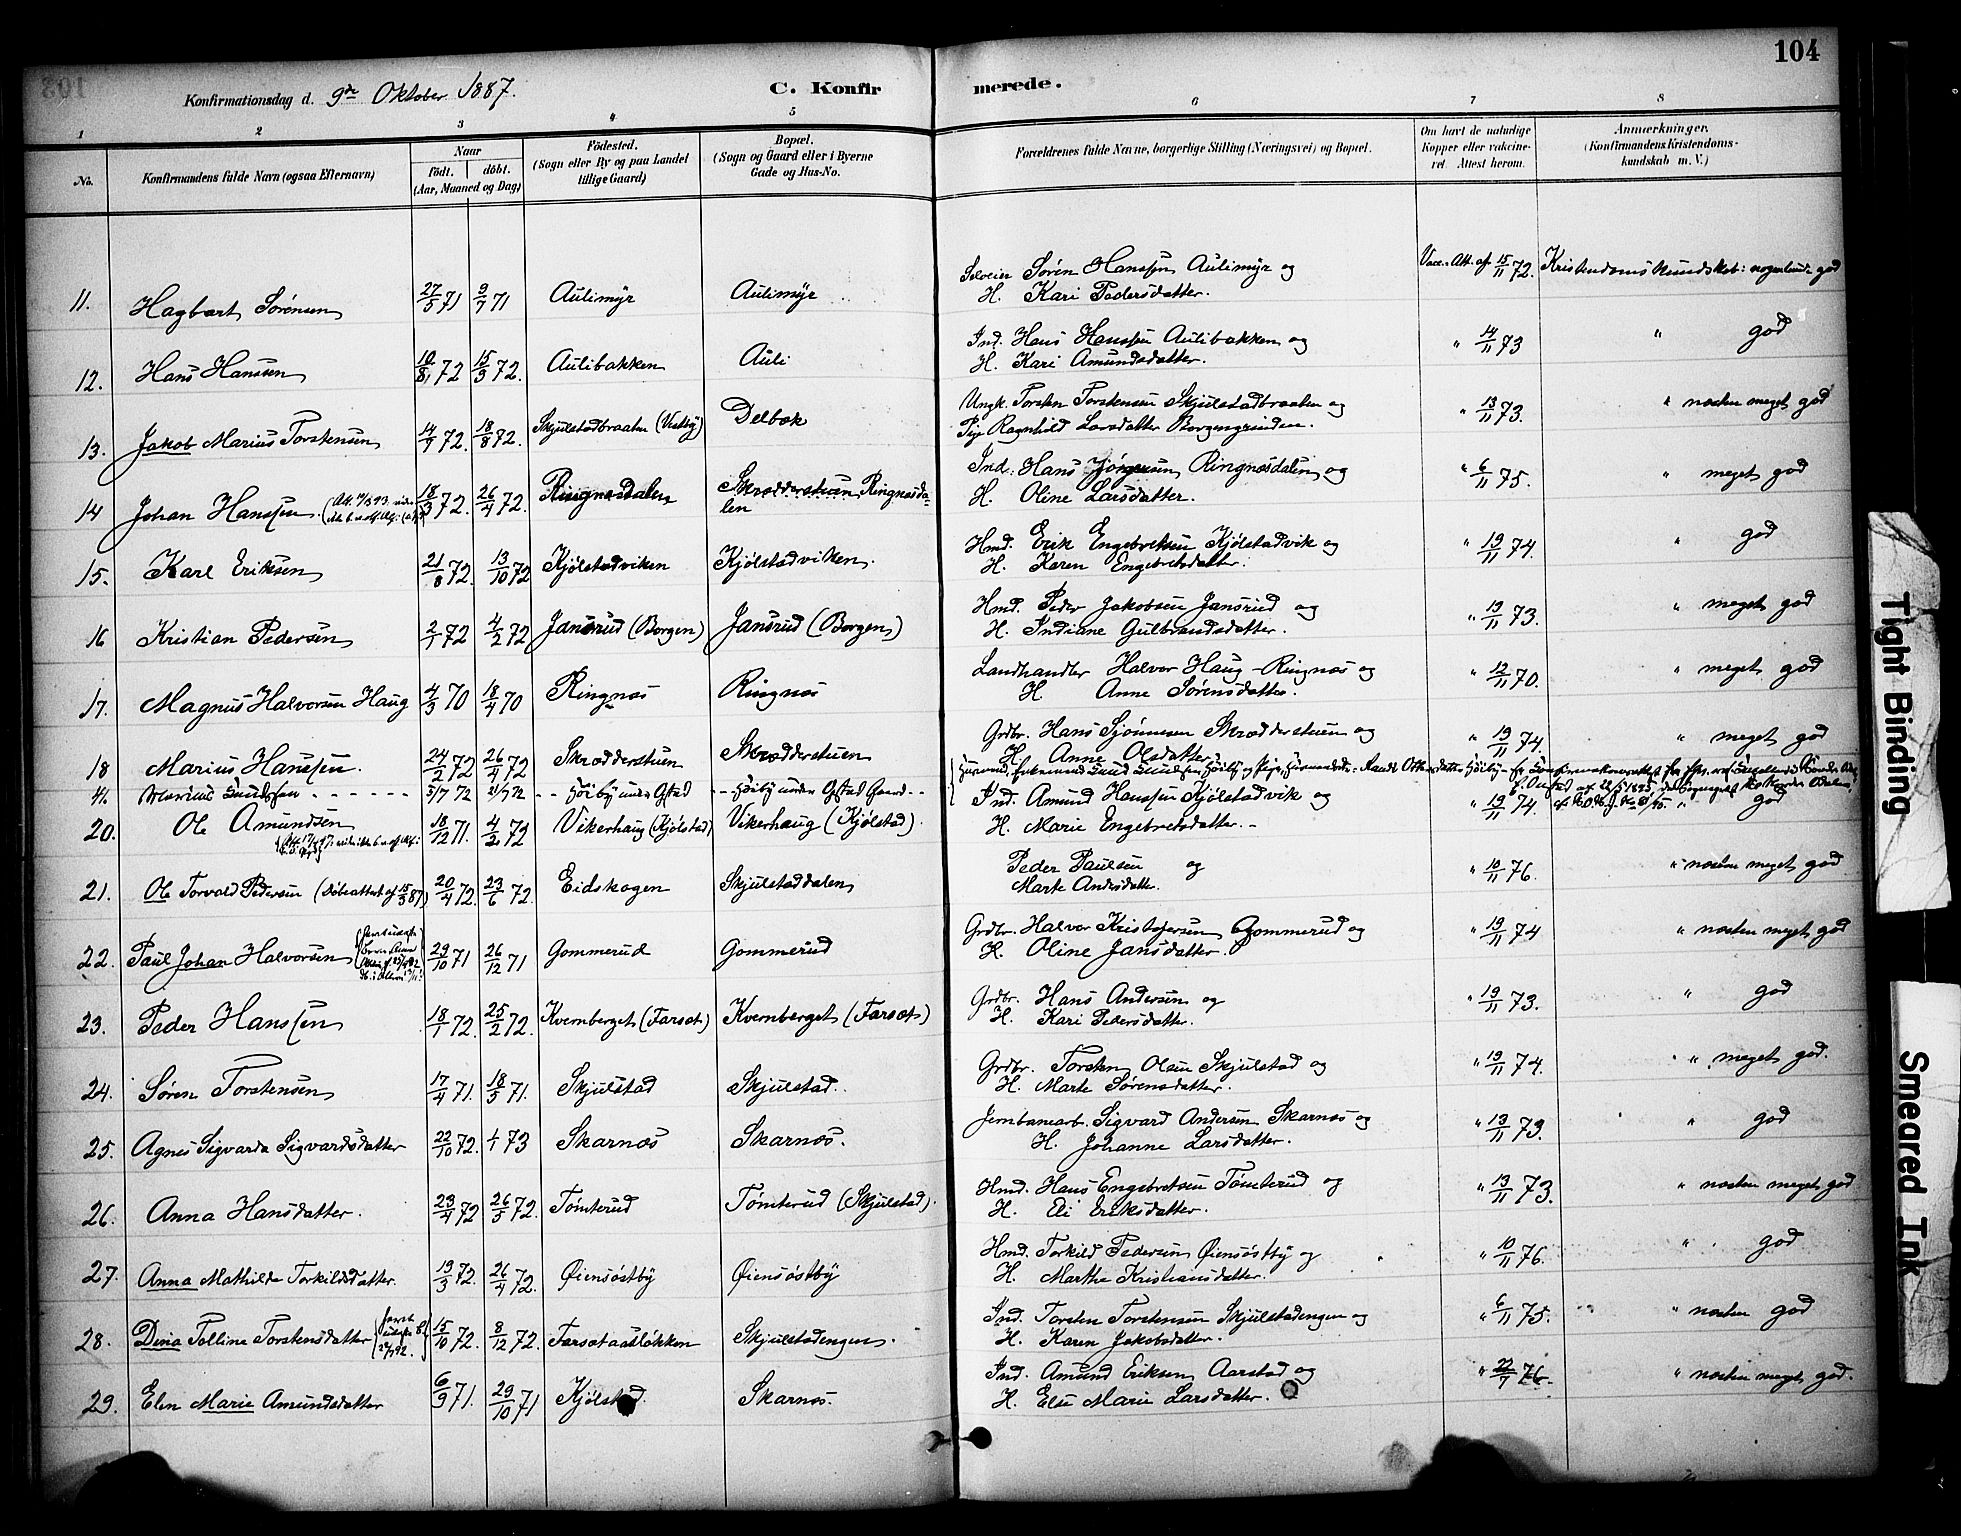 104
Konfirmationsdag d. 9de Oktober 1887.
C. Konfirmerede.
1 2 3 4 5 6 7 8
No.
Konfirmandens fulde Navn (ogsaa Efternavn)
Naar
födt. döbt.
(Aar, Maaned og Dag)
Födested.
(Sogn eller By og paa Landet
tillige Gaard)
Bopæl.
(Sogn og Gaard eller i Byerne
Gade og Hus-No.
Forældrenes fulde Navne, borgerlige Stilling (Næringsvei) og Bopæl.
Om havt de naturlige
Kopper eller vaccine-
ret Attest herom.
Anmærkninger.
(Konfirmandens Kristendoms-
kundskab m. V.)
11. Hagbart Sörensen 27/5 71 9/7 71 Aulimyr Aulimyr Selveier Sören Hanssen Aulimyr og Vacc. Att. af 15/11 72. Kristendomskundskab: nogenlunde god
H. Kari Pedersdatter.
12. Hans Hansen 10/8 72 15/9 72. Aulibakken Auli Ind. Hans Hanssen Aulibakken og " 14/11 73 " god
H. Kari Amundsdatter.
13. Jakob Marius Torstensen 14/7 72. 18/8 72. Skjulstadbraaten (Vestby) Delbæk Ungk. Torsten Torstensen Skjulstadbraaten og " 13/11 73. " næsten meget god
Pige Ragnhild Larsdatter Borgengrinden.
14 Johan Hanssen. 18/3 72. 26/4 72. Ringnæsdalen Skrædderstuen Ringnæsda-
len Ind. Hans Jörgensen Ringnæsdalen og " 6/11 75. " meget god
H. Oline Larsdatter.
15. Karl Eriksen 21/8 72. 13/10 72 Kjølstadviken Kjølstadviken. Hmd. Erik Engebretsen Kjølstadvik og " 19/11 74. " god
H. Karen Engebretsdatter.
16 Kristian Pedersen 2/1 72 4/2 72 Jansrud (Borgen) Jansrud (Borgen) Hmd. Peder Jakobsen Jansrud og " 19/11 73. " meget god
H. Indiane Gulbrandsdatter.
17. Magnus Halvorsen Haug 4/3 70 18/4 70 Ringnæs Ringnæs Landhandler Halvor Haug - Ringnæs og " 12/11 70. " meget god
H. Anne Sørensdatter.
18 Marius Hanssen. 24/2 72 26/4 72 Skrædderstuen Skrædderstuen Grdbr. Hans Sjønnesen Skrædderstuen og " 19/11 74. " meget god
H. Anne Olsdatter
20. Ole Amundsen 18/12 71. 4/2 72 Vikerhaug (Kjølstad) Vikerhaug (Kjølstad). Ind. Amund Hanssen Kjølstadvik og " 19/11 74. " god
H. Marie Engebretsdatter. -
21. Ole Torvald Pedersen (Döbeattest af 15/3 87) 20/4 72. 23/6 72. Eidskogen Skjulstaddalen Peder Paulsen og " 10/11 76. " næsten meget god
Marte Andersdatter.
22. Paul Johan Halvorsen 29/10 71 26/12 71 Gommerud Gommerud Grdbr. Halvor Kristofersen Gommerud og " 19/11 74 " næsten meget god
H. Oline Jansdatter.
23. Peder Hanssen 18/1 72. 25/2 72. Kvernberget (Farsæt) Kvernberget (Farsæt) Grdbr. Hans Andersen og " 19/11 73. " god
H. Kari Pedersdatter.
24. Søren Torstensen 17/4 71. 18/5 71. Skjulstad Skjulstad. Grdbr. Torsten Olsen Skjulstad og " 19/11 74. " meget god.
H. Marte Sørensdatter.
25. Agnes Sigvarda Sigvardsdatter 22/10 72. 1/1 73 Skarnæs Skarnæs. Jernbanearb. Sigvard Andersen Skarnæs og " 13/11 73. " god
H. Johanne Larsdatter.
26. Anna Hansdatter. 23/4 72 26/5 72. Tømterud Tømterud (Skjulstad). Hmd. Hans Engebretsen Tømterud og " 13/11 73. " næsten meget god
H. Eli Eriksdatter.
27. Anna Mathilde Torkildsdatter. 19/3 72. 26/4 72. Øiensøstby Øiensøstby Hmd. Torkild Pedersen Øiensøstby og " 10/11 76. " god
H. Marthe Kristiansdatter.
28. Dina Polline Torstensdatter 15/10 72. 8/12 72. Farsætaasløkken Skjulstadengen. Ind. Torsten Torstensen Skjulstadengen og " 6/11 75. " næsten god
H. Karen Jakobsdatter.
29. Elen Marie Amundsdatter 6/9 71. 29/10 71 Kjølstad. Skarnæs. Ind. Amund Eriksen Aarstad og " 22/7 76. " næsten meget god.
H. Else Marie Larsdatter.
Tight Binding
Smeared Ink